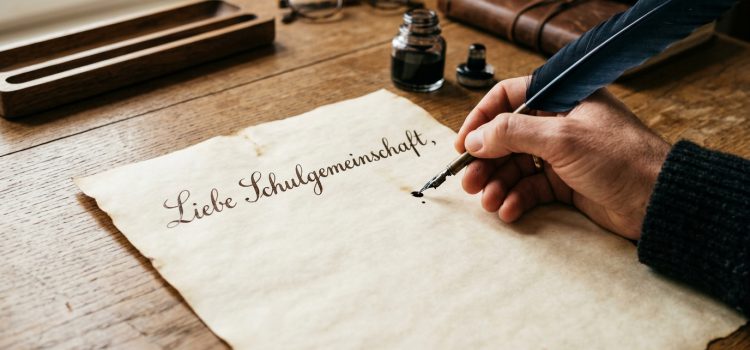 Liebe Schulgemeinschaft,